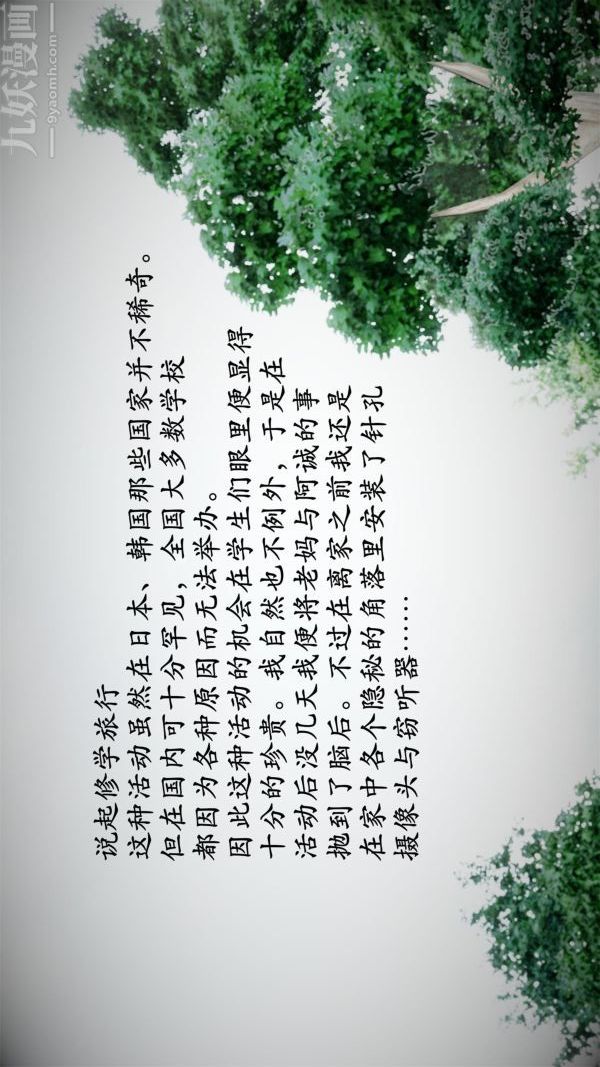 说起修学旅行
这种活动虽然在日本、韩国那些国家并不稀奇。
但在国内可十分罕见，全国大多数学校
都因为各种原因而无法举办。
因此这种活动的机会在学生们眼里便显得
十分的珍贵。我自然也不例外，于是在
活动后没几天我便将老妈与阿诚的事
抛到了脑后。不过在离家之前我还是
在家中各个隐秘的角落里安装了针孔
摄像头与窃听器……
九妖漫画
9yaomh.com